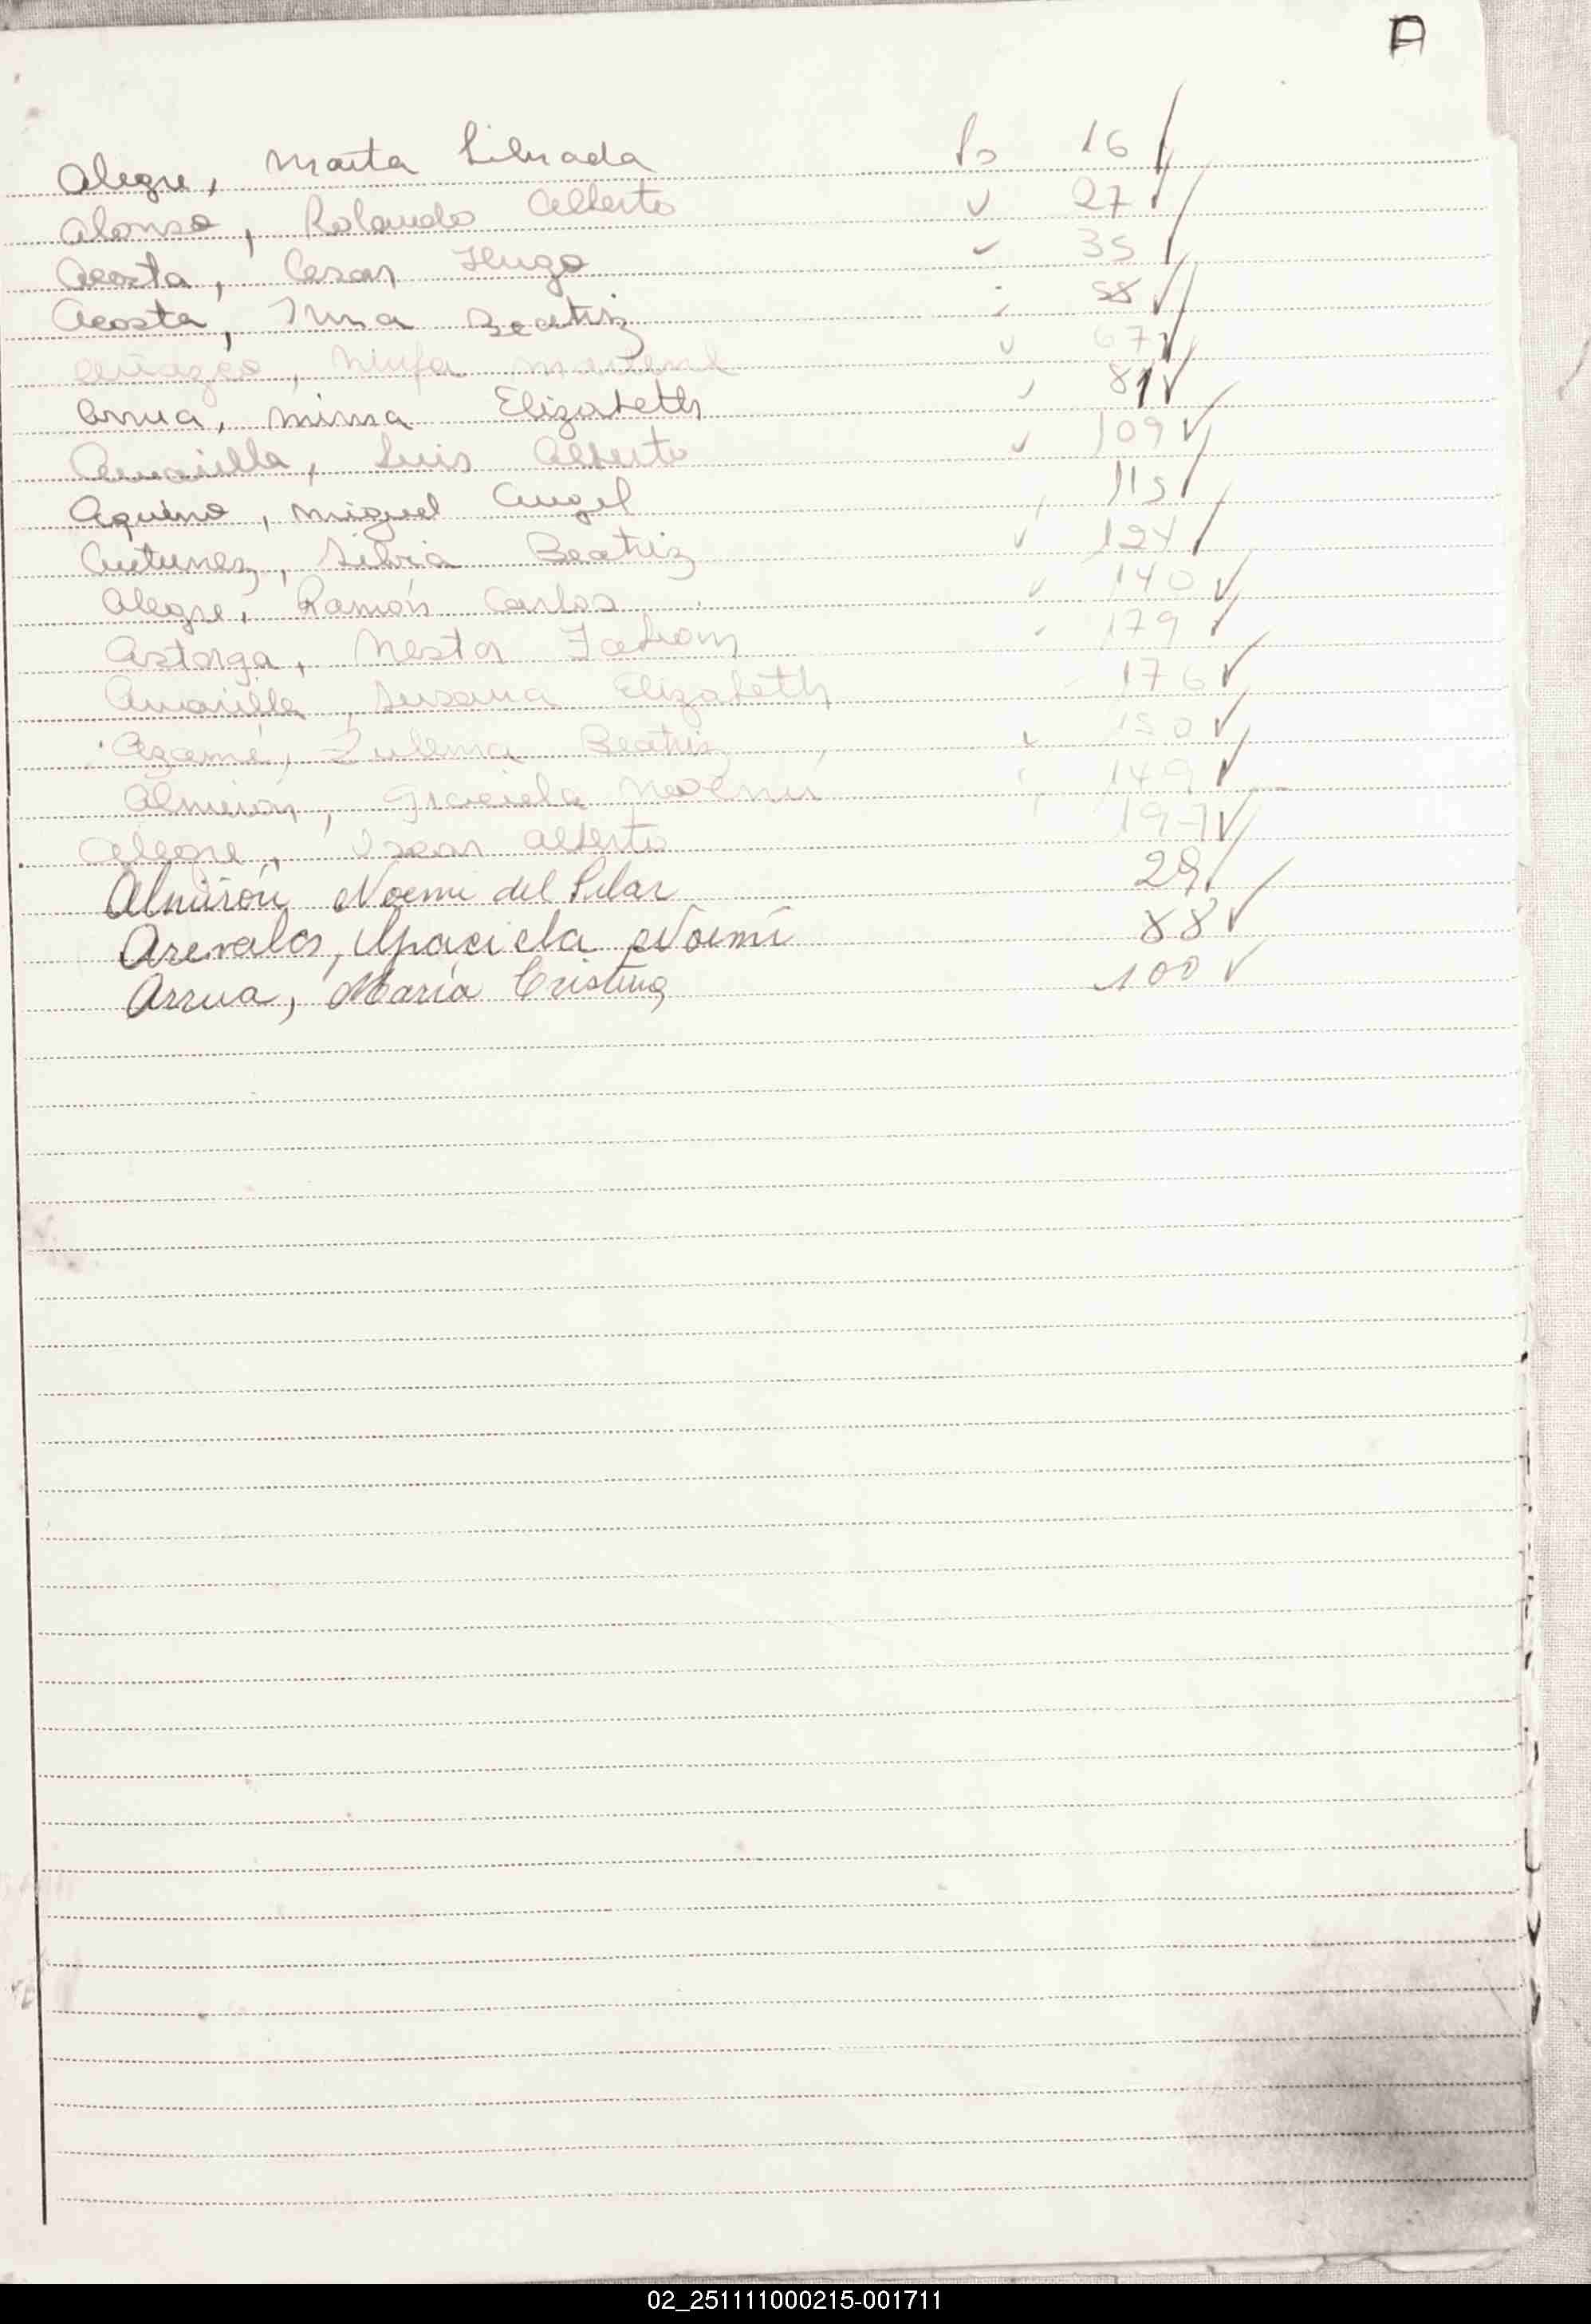 A
Alegre, Marta Librada Fo 16
Alonso, Rolando Alberto 27
Acosta, Cesar Hugo 35
Acosta, Irma Beatriz 58
Ninfa 67
Arrua, Mirna Elizabeth 81
Amarilla, Luis Alberto 109
Aquino, Miguel Angel 115
Antunez, Silvia Beatriz 124
Alegre, Ramón Carlos 140
Astorga, Nestor Fabian 179
Amarilla, Susana Elizabeth 176
Azamé, Zulema Beatriz 150
Almirón, Graciela Noemi 149
Alegre, Oscar Alberto 197
Almirón Noemi del Pilar 29
Arevalos, Graciela Noemí 88
Arrua, María Cristina 100
02_251111000215-001711